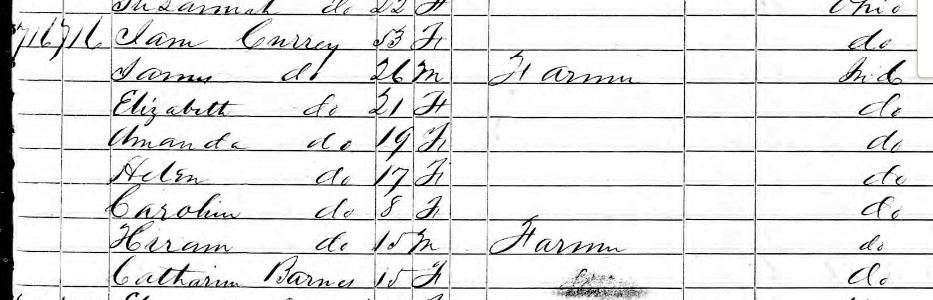 Susannah do 22 F Ohio
716 716 Jam Currey 53 F do
James do 26 M Farmer Ind
Elizabeth do 21 F do
Amanda do 19 F do
Helen do 17 F do
Carolin do 8 F do
Hiram do 15 M Farmer do
Catharin Barnes 15 F do